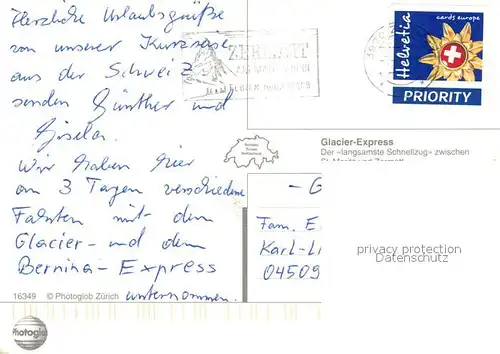 Herzliche Urlaubsgrüße
von unserer Kurzreise
aus der Schweiz
senden Günther und
Gisela.
Wir haben hier
an 3 Tagen verschiedene
Fahrten mit dem
Glacier- und dem
Bernina-Express
unternommen.
16349 © Photoglob Zürich
Photoglob
ZERMATT
Helvetia
cards europe
PRIORITY
Glacier-Express
Der «langsamste Schnellzug» zwischen
St. Moritz und Zermatt
- G
Fam. E
Karl-Li
04509
privacy protection
Datenschutz